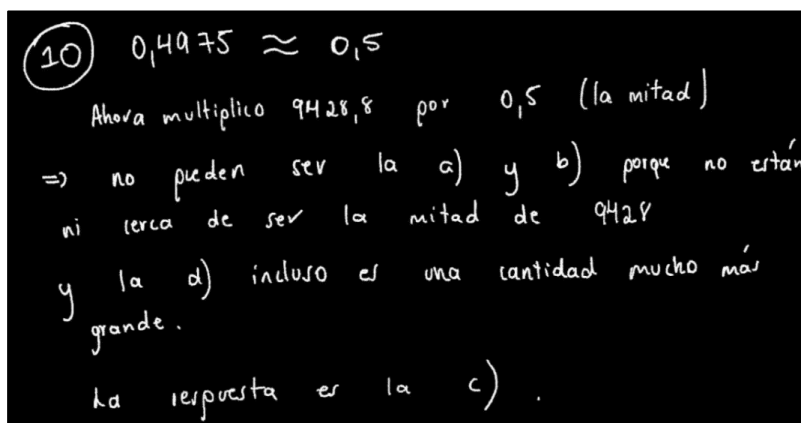 10 0,4975 ≈ 0,5
Ahora multiplico 9428,8 por 0,5 (la mitad)
=> no pueden ser la a) y b) porque no están
ni cerca de ser la mitad de 9428
y la d) incluso es una cantidad mucho más
grande.
La respuesta es la c).